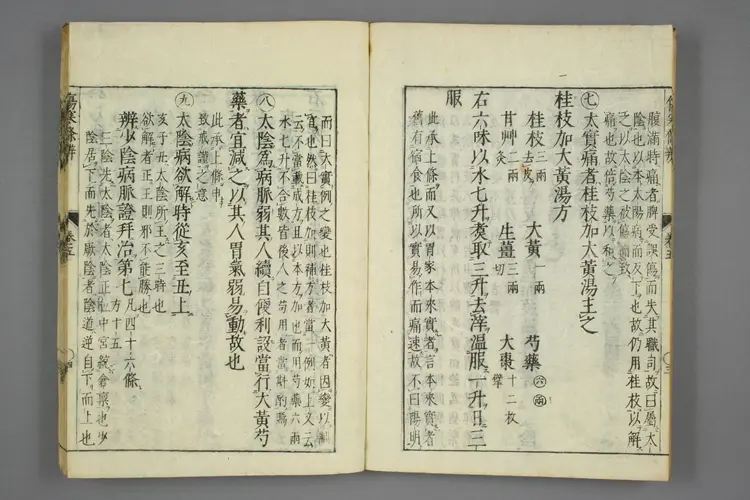 腹滿時痛者脾受誤傷而失其職司故曰屬太
陰也以本太陽病而反下也故仍用桂枝以解
之以太陰之被傷而致
痛也故倍芍藥以和之
㊆大實痛者桂枝加大黃湯主之
桂枝加大黃湯方
桂枝三兩去皮 大黃一兩 芍藥六兩
甘艸二兩炙 生薑三兩切 大棗十二枚擘
右六味以水七升煑取三升去滓溫服一升日三
服
此承上條而又以胃家本來實者言本來實者
舊有宿食也所以實易作而痛速故不曰陽明
而曰大實例之變也桂枝加大黃者因變以制
宜也然曰桂枝加則補方者當一例如上文云
云不當載成方且以本方加也而用芍藥六兩
水七升不合數皆後人之苟用者當斟酌焉
㊇太陰爲病脈弱其人續自便利設當行大黃芍
藥者宜減之以其人胃氣弱易動故也
此承上條申
致戒謹之意
㊈太陰病欲解時從亥至丑上
亥子丑太陰所王之三時也
欲解者正王則邪不能勝也
辨少陰病脈證幷治第七凡四十六條方十五
三陰先太陰者太陰正位中宮統衆藥也少
陰居下而先於厥陰者陰道逆自下而上也
傷寒條辨 卷五